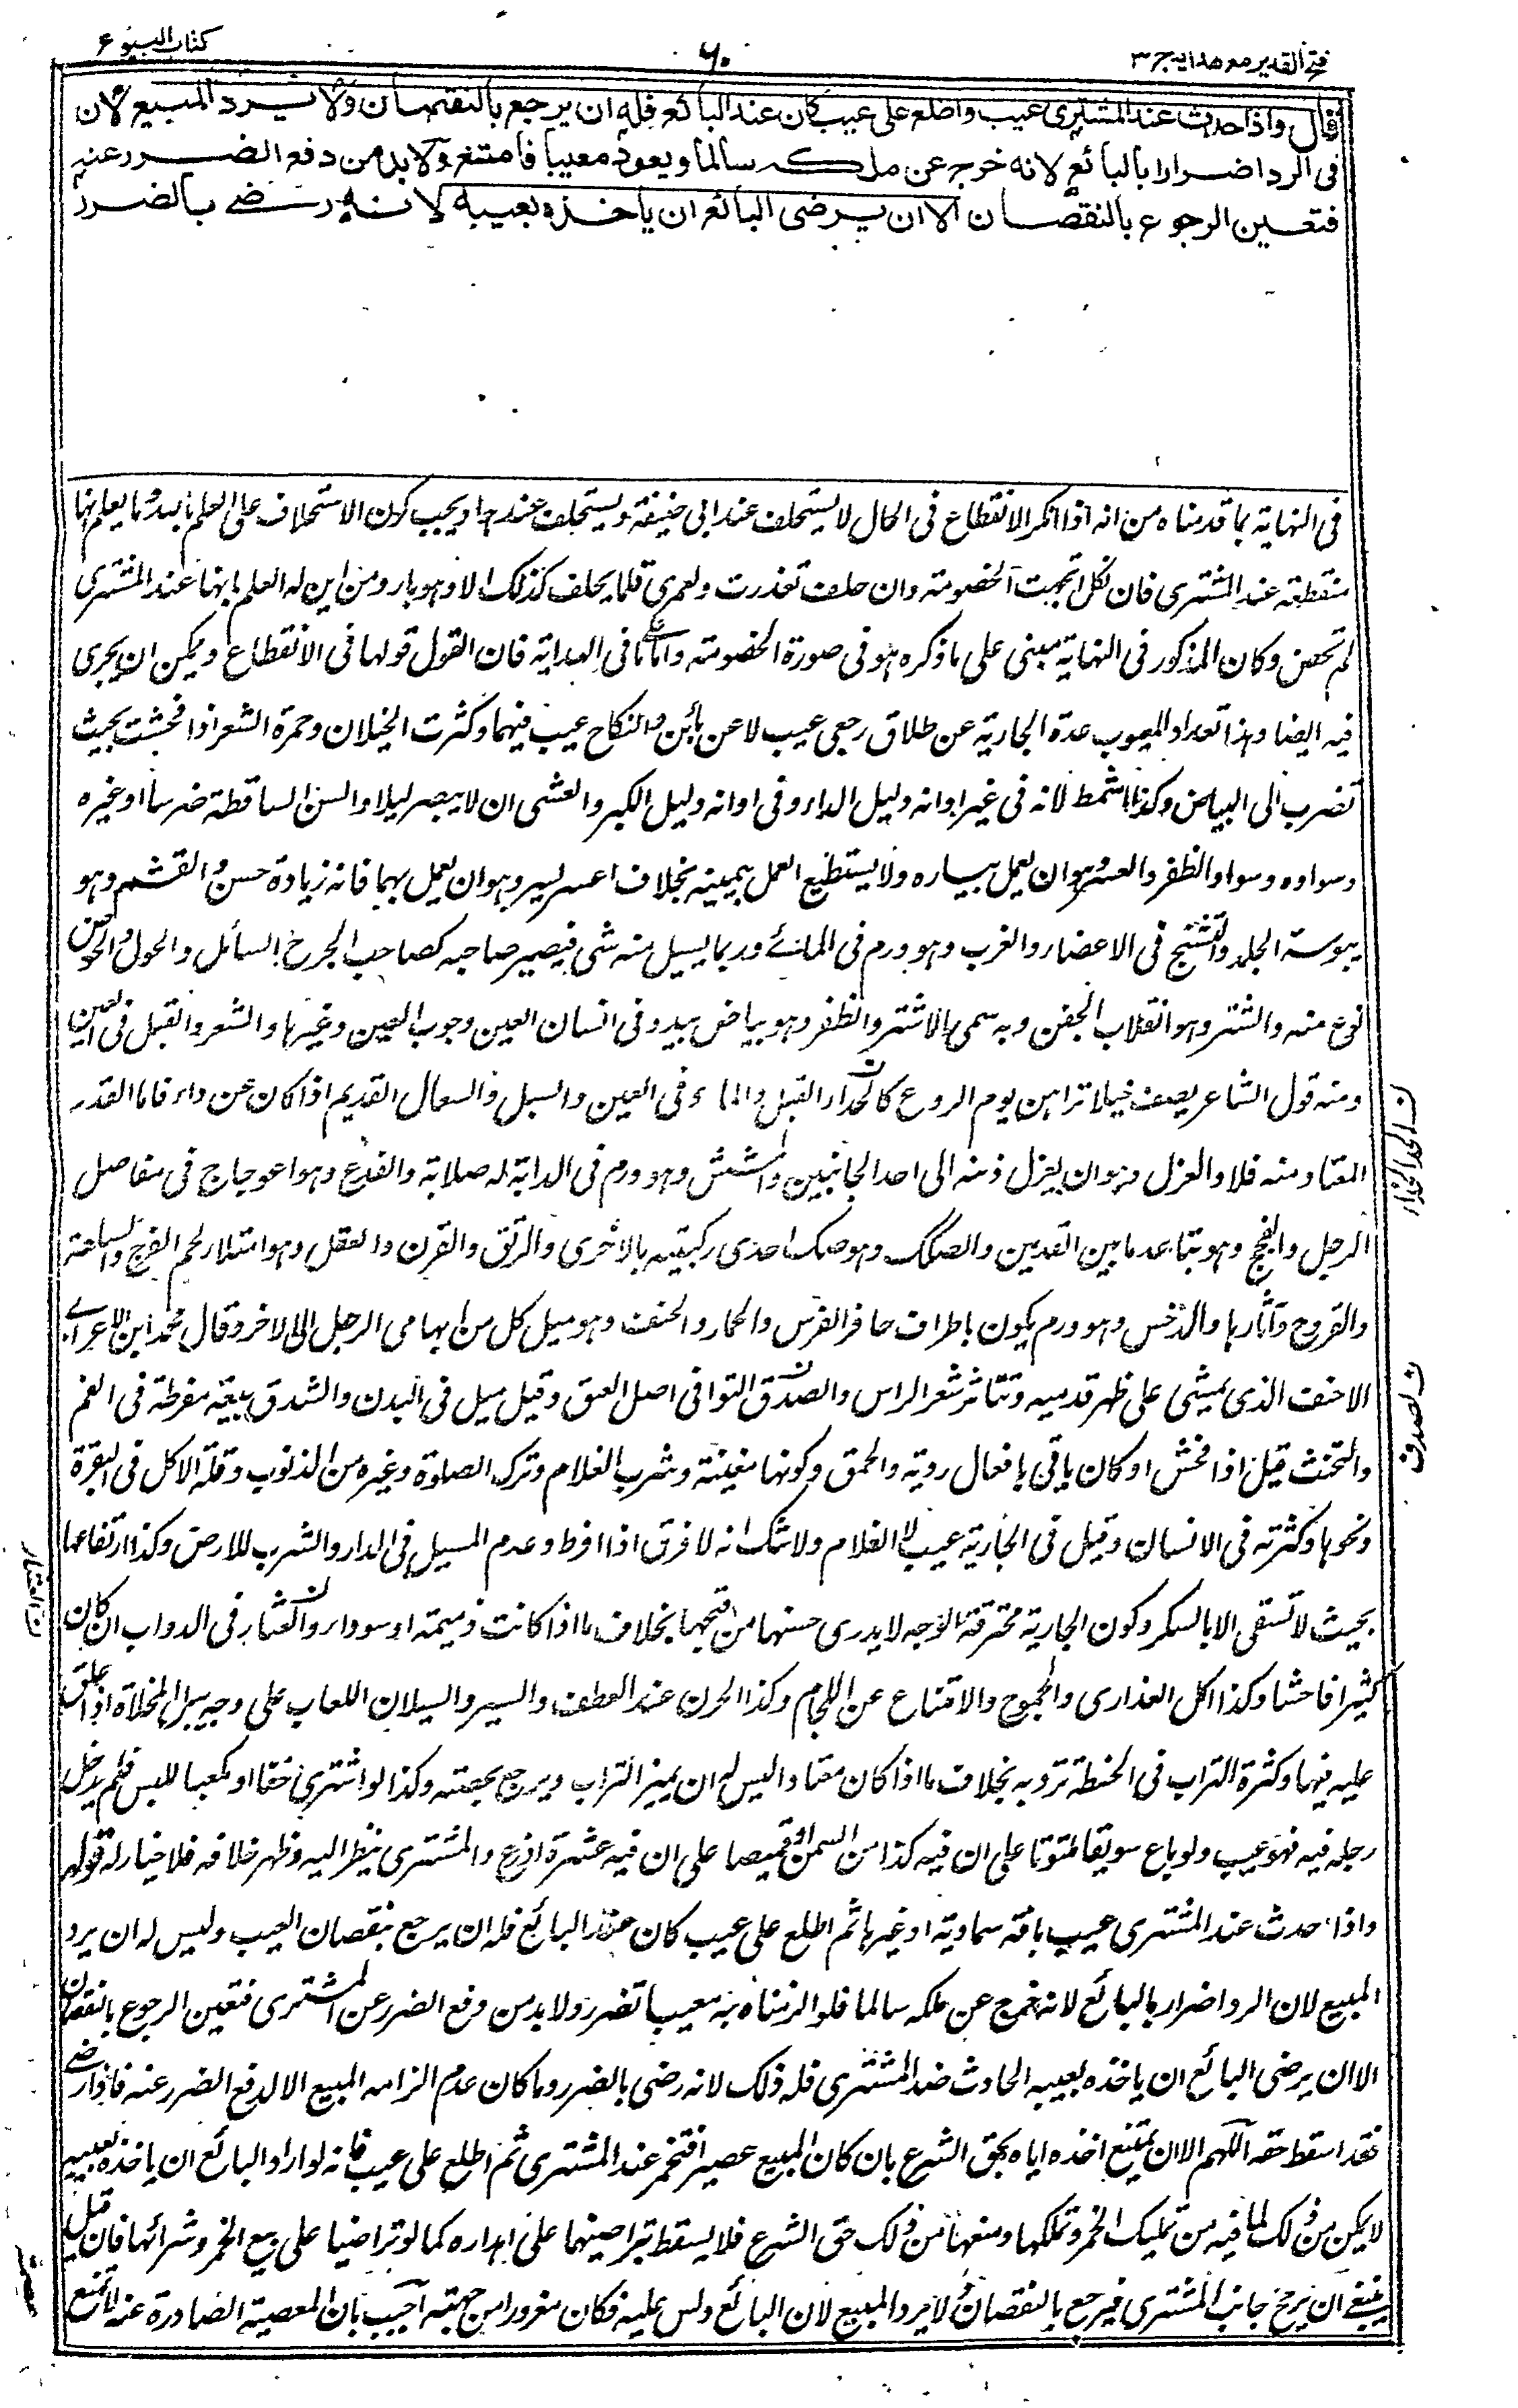 فتح القدير مع هدايه ج ٣
٦٠
كتاب البيوع
قال واذا حدث عند المشترى عيب واطلع على عيب كان عند البائع فله ان يرجع بالنقصان ولا يرد المبيع لان
فى الرد اضرارا بالبائع لانه خرج عن ملكه سالما ويعود معيبا فامتنع ولا بد من دفع الضرر عنه
فتعين الرجوع بالنقصان الا ان يرضى البائع ان ياخذه بعيبه لانه رضى بالضرر
فى النهاية بما قدمناه من انه اذا انكر الانقطاع فى الحال لا يستحلف عند ابى حنيفة ويستحلف عندهما ويجب كون الاستحلاف على العلم بالله ما يعلم انها
منقطعة عند المشترى فان نكل اتجهت الخصومة وان حلف تعذرت ولعمرى قلما يحلف كذلك الا وهو بار ومن اين له العلم بانها عند المشترى
لم تحض وكان المذكور فى النهاية مبنى على ما ذكره هو فى صورة الخصومة واما على ما فى الهداية فان القول قولها فى الانقطاع ويمكن ان يجرى
فيه ايضا وهذا تعداد العيوب عدة الجارية عن طلاق رجعى عيب لا عن بائن والنكاح عيب فيهما وكثرت الخيلان وحمرة الشعر اذا فحشت بحيث
تضرب الى البياض وكذا الشمط لانه فى غير اوانه دليل الداء وفى اوانه دليل الكبر والعشى ان لا يبصر ليلا والسن الساقطة ضرسا او غيره
وسواده وسواد الظفر والعسر وهو ان يعمل بيساره ولا يستطيع العمل بيمينه بخلاف اعسر يسر وهو ان يعمل بهما فانه زيادة حسن والقشم وهو
يبوسة الجلد والتشنج فى الاعضاء والغرب وهو ورم فى الماق وربما يسيل منه شى فيصير صاحبه كصاحب الجرح السائل والحول والخوص
نوع منه والشتر وهو انقلاب الجفن وبه سمى الاشتر والظفر وهو بياض يبدو فى انسان العين وجوب العين وغيرها والشعر والقبل فى العين
ومنه قول الشاعر يصف خيلا تراهن يوم الروع كالحدار القبل والماء فى العين والسبل والسعال القديم اذا كان عن داء فاما القدر
المعتاد منه فلا والعزل وهو ان يعزل ذنبه الى احد الجانبين والمشش وهو ورم فى الدابة له صلابة والفدع وهو اعوجاج فى مفاصل
الرجل والفحج وهو تباعد ما بين القدمين والصكك وهو صك احدى ركبتيه بالاخرى والرتق والقرن والعفل وهو امتلاء لحم الفرج والسلعة
والقروح وآثارها والدخس وهو ورم يكون باطراف حافر الفرس والحمار والحنف وهو ميل كل من ابهامى الرجل الى الاخر وقال محمد ابن الاعرابى
الاحنف الذى يمشى على ظهر قدميه وتناثر شعر الراس والصدق التوا فى اصل العنق وقيل ميل فى البدن والشدق سعة مفرطة فى الفم
والتخنث قيل اذا فحش او كان ياتى بافعال ردية والحمق وكونها مغنية وشرب الغلام وترك الصلوة وغيره من الذنوب وقلة الاكل فى البقرة
ونحوها وكثرته فى الانسان وقيل فى الجارية عيب لا الغلام ولا شك انه لا فرق اذا افرط وعدم المسيل فى الدار والشرب للارض وكذا ارتفاعها
بحيث لا تسقى الا بالسكر وكون الجارية محترقة الوجه لا يدرى حسنها من قبحها بخلاف ما اذا كانت دميمة او سوداء والعثار فى الدواب ان كان
كثيرا فاحشا وكذا اكل العذارى والجموح والامتناع عن اللجام وكذا الحرن عند العطف والسير والسيلان اللعاب على وجه يبل المخلاة اذا علق
عليه فيها وكثرة التراب فى الحنطة ترد به بخلاف ما اذا كان معتادا ليس له ان يميز التراب ويرجع بحصته وكذا لو اشترى خفا او مكعبا للبس فلم يدخل
رجله فيه فهو عيب ولو باع سويقا ملتوتا على ان فيه كذا من السمن او قميصا على ان فيه عشرة اذرع والمشترى ينظر اليه وظهر خلافه فلا خيار له قوله
واذا حدث عند المشترى عيب بافة سماوية او غيرها ثم اطلع على عيب كان عند البائع فله ان يرجع بنقصان العيب وليس له ان يرد
المبيع لان الرد اضرار بالبائع لانه خرج عن ملكه سالما فلو الزمناه به معيبا تضرر ولا بد من دفع الضرر عن المشترى فتعين الرجوع بالنقصان
الا ان يرضى البائع ان ياخذه بعيبه الحادث عند المشترى فله ذلك لانه رضى بالضرر وما كان عدم الزامه المبيع الا لدفع الضرر عنه فاذا رضى
فقد اسقط حقه اللهم الا ان يمتنع اخذه اياه بحق الشرع بان كان المبيع عصيرا فتخمر عند المشترى ثم اطلع على عيب فانه لو اراد البائع ان ياخذه بعيبه
لا يمكن من ذلك لما فيه من تمليك الخمر وتملكها ومنعهما من ذلك حق الشرع فلا يسقط بتراضيهما على اهداره كما لو تراضيا على بيع الخمر وشرائها فان قيل
ينبغى ان يرجح جانب المشترى فيرجع بالنقصان ولا يرد المبيع لان البائع دلس عليه فكان مغرورا من جهته اجيب بان المعصية الصادرة عنه لا تمنع
ن الصدف
ن العثار